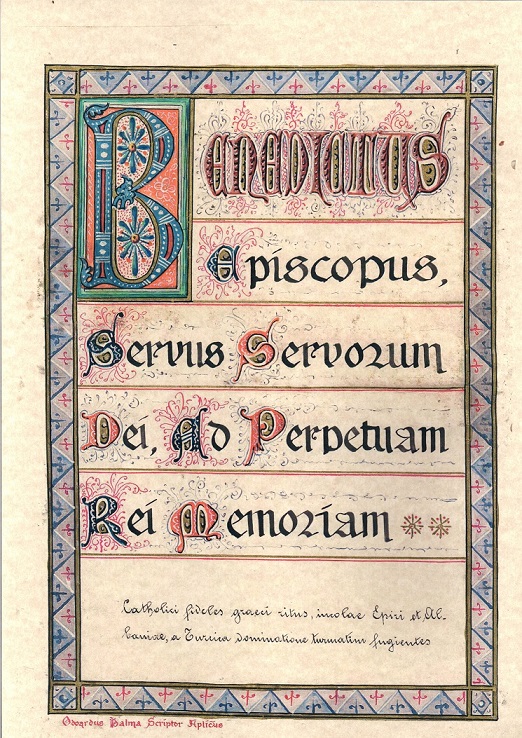 Benedictus
Episcopus,
Servus Servorum
Dei, Ad Perpetuam
Rei Memoriam
Catholici fideles graeci ritus, incolae Epiri et Al-
baniae, a Turcica dominatione turmatim fugientes
Odoardus Balma Scriptor Aplicus